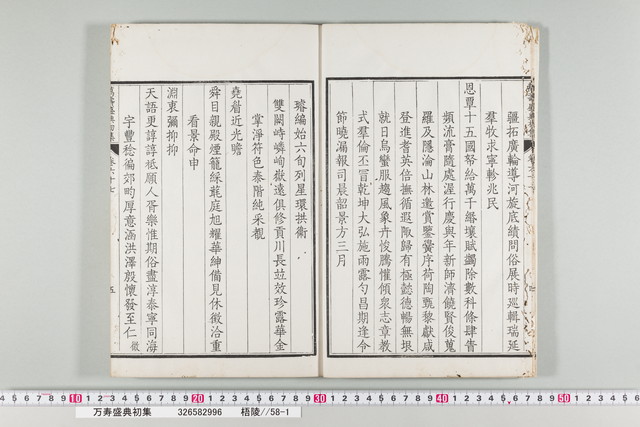 疆拓廣輪導河旋底績問俗展時巡輯瑞延
羣牧求寧軫兆民
恩覃十五國帑給萬千緡壤賦蠲除數科條肆眚
頻流膏隨處渥行慶與年新師濟饒賢俊蒐
羅及隱淪山林邀賞鑒黌序荷陶甄黎獻咸
登進耆英倍撫循遐陬歸有極懿德暢無垠
就日鳥蠻服趨風象卉悛騰懽傾衆志章教
式羣倫丕冒乾坤大弘施雨露勻昌期逢令
節曉漏報司晨韶景方三月
璿編始六旬列星環拱衛
雙闕峙嶙峋嶽遠俱修貢川長竝效珍露華金
掌淨符色泰階純采覲
堯眉近光瞻
舜目親殿煙籠綵蕤庭旭耀華紳備見休徵洽重
看景命申
淵衷彌抑抑
天語更諄諄祗願人胥樂惟期俗盡淳泰寧同海
宇豐稔徧郊畇厚意涵洪澤殷懷發至仁
徽
五
0 1 2 3 4 5 6 7 8 9 10 20 30 40 50
万寿盛典初集 326582996 梧陵//58-1